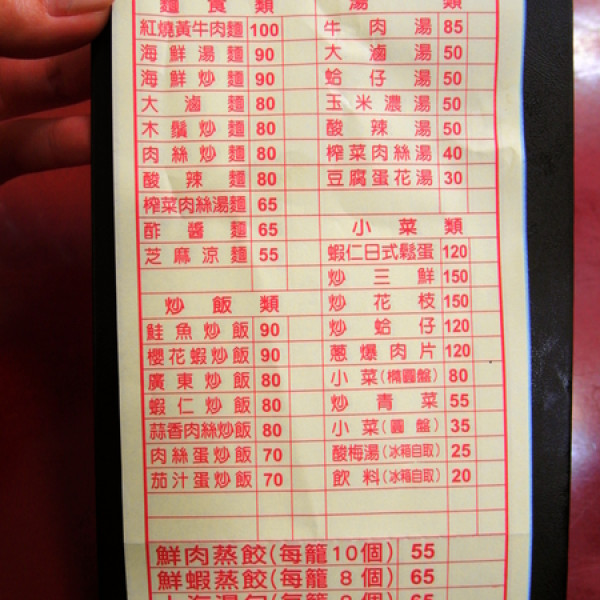 麵食類
紅燒黃牛肉麵 100
海鮮湯麵 90
海鮮炒麵 90
大滷麵 80
木鬚炒麵 80
肉絲炒麵 80
酸辣麵 80
榨菜肉絲湯麵 65
酢醬麵 65
芝麻涼麵 55
炒飯類
鮭魚炒飯 90
櫻花蝦炒飯 90
廣東炒飯 80
蝦仁炒飯 80
蒜香肉絲炒飯 80
肉絲蛋炒飯 70
茄汁蛋炒飯 70
湯類
牛肉湯 85
大滷湯 50
蛤仔湯 50
玉米濃湯 50
酸辣湯 50
榨菜肉絲湯 40
豆腐蛋花湯 30
小菜類
蝦仁日式鬆蛋 120
炒三鮮 150
炒花枝 150
炒蛤仔 120
蔥爆肉片 120
小菜(橢圓盤) 80
炒青菜 55
小菜(圓盤) 35
酸梅湯(冰箱自取) 25
飲料(冰箱自取) 20
鮮肉蒸餃(每籠10個) 55
鮮蝦蒸餃(每籠8個) 65
上海湯包(每籠8個) 65